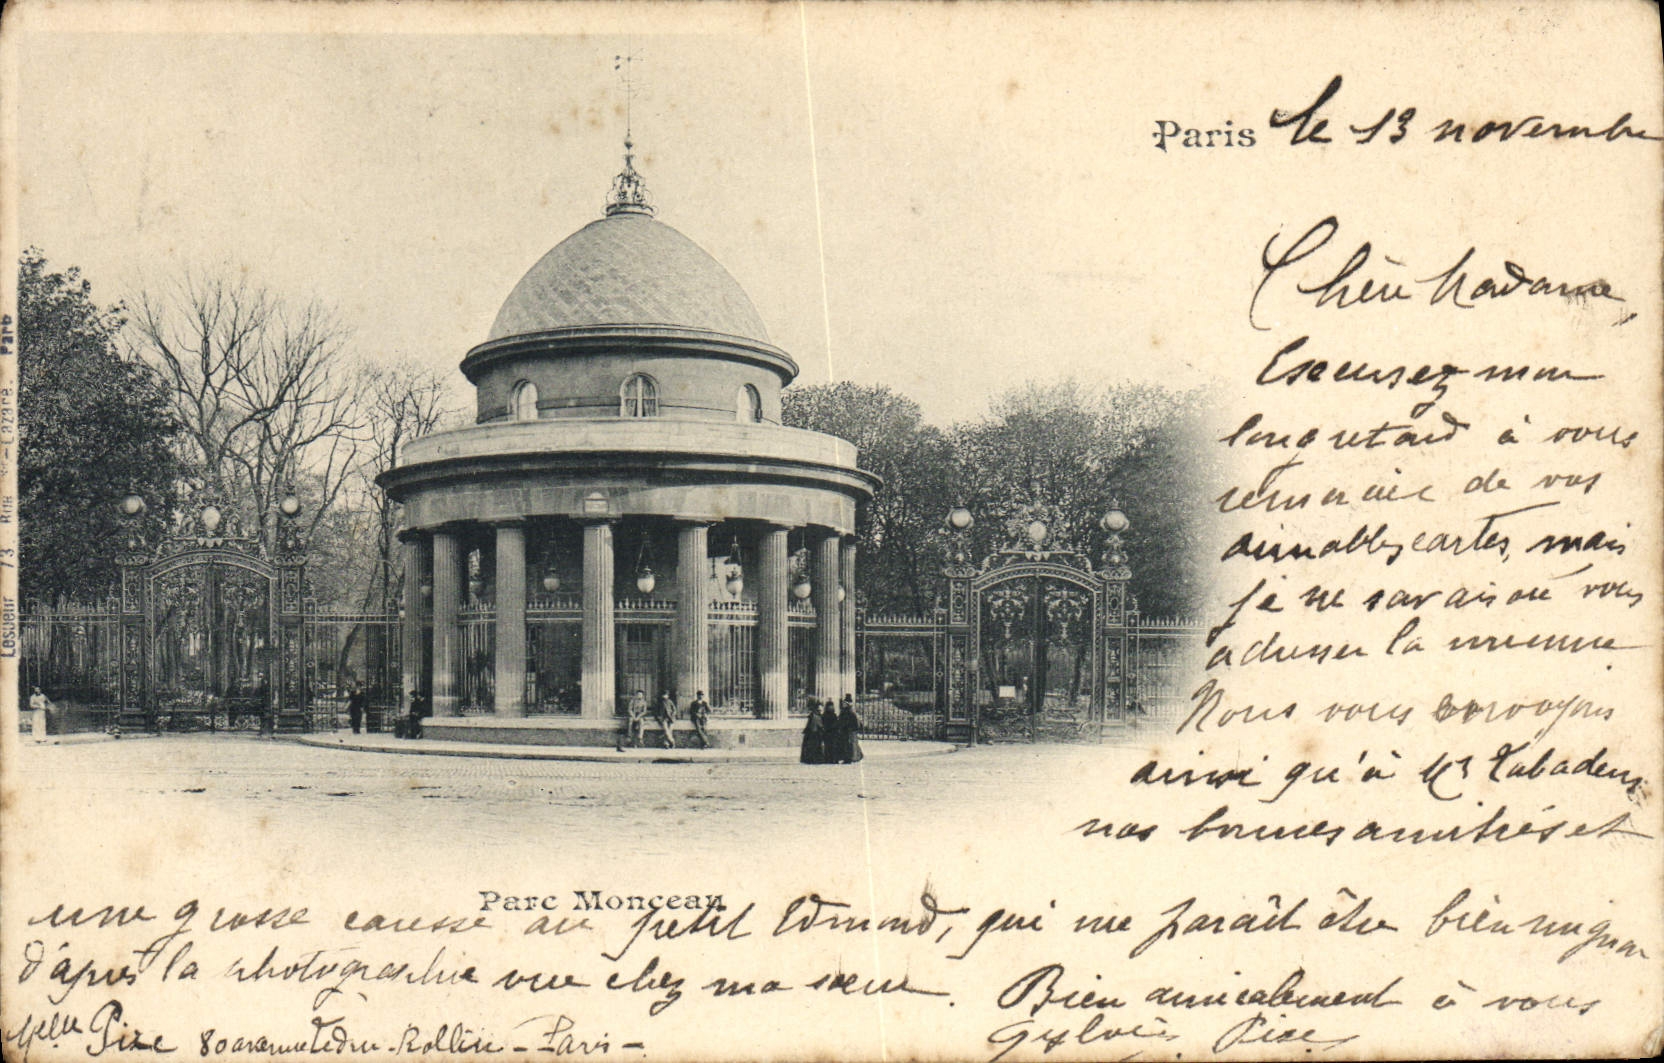 Paris le 13 novembre
Chère Madame,
Excusez mon
long retard à vous
remercier de vos
aimables cartes, mais
je ne savais où vous
adresser la mienne.
Nous vous envoyons
ainsi qu'à Mr
nos bonnes amitiés et
Parc Monceau
une grosse caresse au petit Edmond, qui me paraît être bien mignon
d'après la photographie vue chez ma sœur. Bien amicalement à vous
Melle 80 avenue Ledru-Rollin - Paris -
Sylvie
Lesueur 73 Rue St-Lazare. Paris